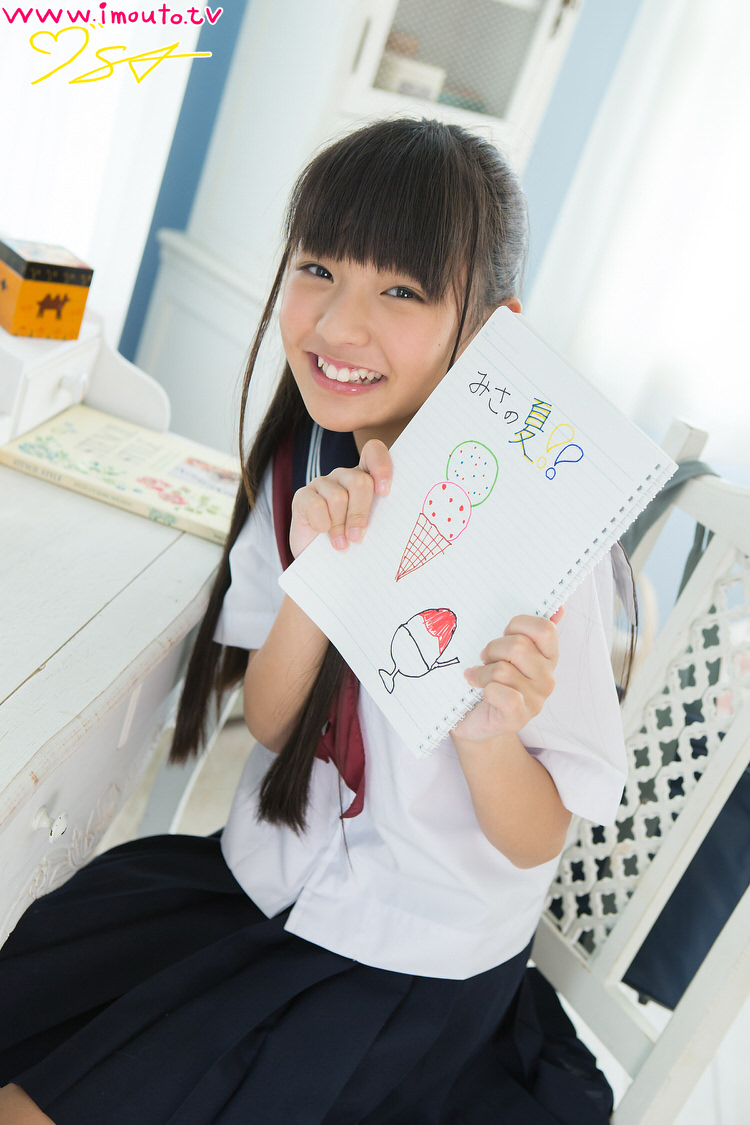 www.imouto.tv
みさの夏!!